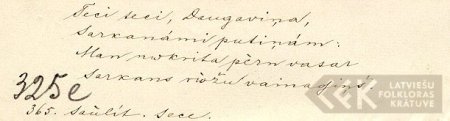 Teci teci, Daugaviņa,
Sarkanámi putiņám:
Man nokrita pērn vasar
Sarkans rōžu vainagiņš.
325e
365. Saulīt. Sece.
LATVIEŠU
FOLKLORAS
KRĀTUVE